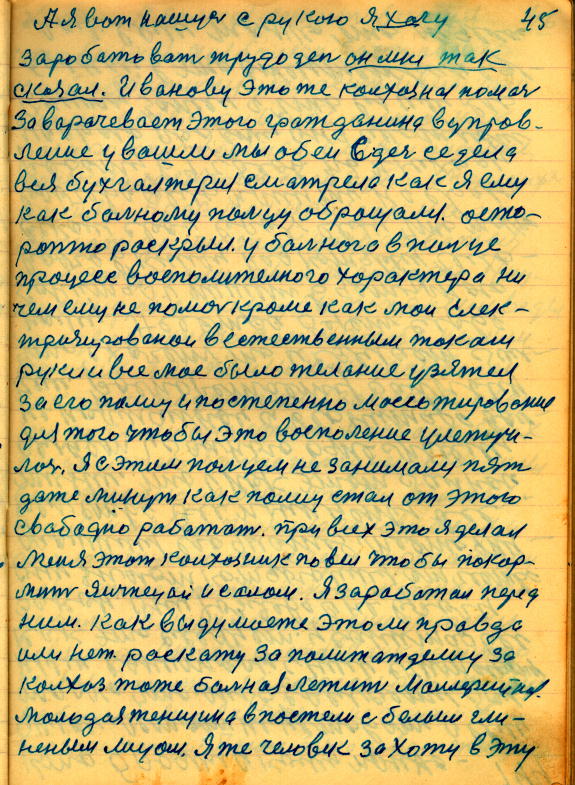 А я вот пашуч с рукою я хочу 45
заработоват трудоден он мни так
сказал. Иванову это же колхозная помоч
Заворачевает этого гражданина в упров-
ление у вошли мы обеи Сдеч седела
вся бухгалтерия сматрела как я ему
как болному полцу оброщали. осто-
рожно роскрыл. у болного в полце
процесс восполителного характера ни
чем ему не помоч кроме как мои елек-
тричированои в естественным токами
руки и все мое было желание узятся
за его полцу и постепенно массожирование
для того чтобы это восполение улетучи-
лоч. Я с этим полцем не занималч пят
даже минут как полцу стал от этого
свабадно работат. при всех это я делал
Меня этот колхозник повел чтобы покор-
мит яичнецой и салом. Я заработал перед
ним. Как вы думаете это ли правда
или нет. роскажу за политатделцу за
колхоз тоже болная лежит Молереинал.
молодая женщина в постели с белым гли-
неным лицом. Я же человек захожу в эту